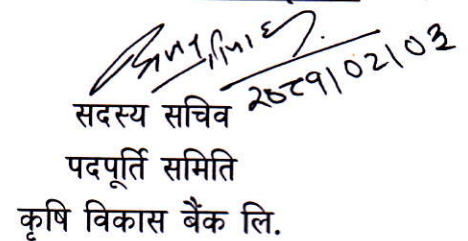 २०८१/०२/०३
सदस्य सचिव
पदपूर्ति समिति
कृषि विकास बैंक लि.